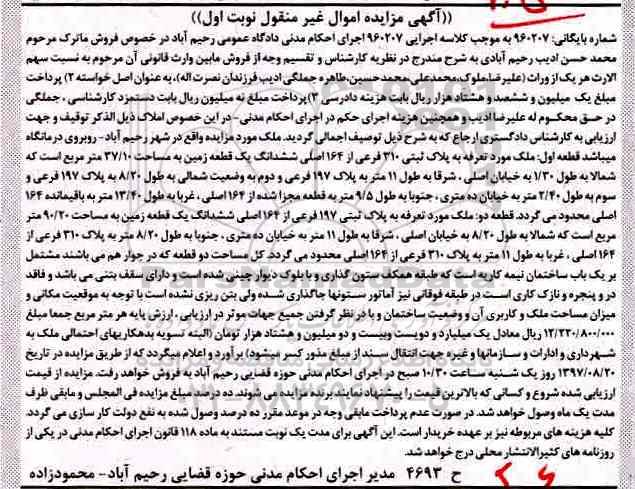 ((آگهی مزایده اموال غیر منقول نوبت اول))
شماره بایگانی: ۹۶۰۲۰۷ به موجب کلاسه اجرایی ۹۶۰۲۰۷ اجرای احکام مدنی دادگاه عمومی رحیم آباد در خصوص فروش ماترک مرحوم
محمد حسن ادیب رحیم آبادی به شرح مندرج در نظریه کارشناس و تقسیم وجه از فروش مابین وراث قانونی آن مرحوم به نسبت سهم
الارث هر یک از وراث (علیرضا،ملوک،محمدعلی،محمدحسین،طاهره جملگی ادیب فرزندان نصرت اله)، به عنوان اصل خواسته ۲) پرداخت
مبلغ یک میلیون و ششصد و هشتاد هزار ریال بابت هزینه دادرسی ۳) پرداخت مبلغ نه میلیون ریال بابت دستمزد کارشناسی ، جملگی
در حق محکوم له علیرضا ادیب و همچنین هزینه اجرای حکم در اجرای احکام مدنی- در این خصوص املاک ذیل الذکر توقیف و جهت
ارزیابی به کارشناس دادگستری ارجاع که به شرح ذیل توصیف اجمالی گردید. ملک مورد مزایده واقع در شهر رحیم آباد- روبروی درمانگاه
میباشد قطعه اول: ملک مورد تعرفه به پلاک ثبتی ۳۱۰ فرعی از ۱۶۴ اصلی ششدانگ یک قطعه زمین به مساحت ۳۷/۱۰ متر مربع است که
شمالا به طول ۱/۳۰ به خیابان اصلی ، شرقا به طول ۱۱ متر به پلاک ۱۹۷ فرعی و دوم به وضعیت شمالی به طول ۸/۲۰ به پلاک ۱۹۷ فرعی و
سوم به طول ۲/۴۰ متر به خیابان ده متری ، جنوبا به طول ۹/۵ متر به قطعه مجزا شده از ۱۶۴ اصلی ، غربا به طول ۱۳/۴۰ متر به باقیمانده ۱۶۴
اصلی محدود می گردد. قطعه دو: ملک مورد تعرفه به پلاک ثبتی ۱۹۷ فرعی از ۱۶۴ اصلی ششدانگ یک قطعه زمین به مساحت ۹۰/۲۰ متر
مربع است که شمالا به طول ۸/۲۰ به خیابان اصلی ، شرقا به طول ۱۱ متر به خیابان ده متری ، جنوبا به طول ۸/۲۰ متر به پلاک ۳۱۰ فرعی از
۱۶۴ اصلی ، غربا به طول ۱۱ متر به پلاک ۳۱۰ فرعی از ۱۶۴ اصلی محدود می گردد. کل مساحت دو قطعه که در جوار هم می باشند مشتمل
بر یک باب ساختمان نیمه کاره است که طبقه همکف ستون گذاری و با بلوک دیوار چینی شده است و دارای سقف بتنی می باشد و فاقد
در و پنجره و نازک کاری است. در طبقه فوقانی نیز آماتور ستونها جاگذاری شده ولی بتن ریزی نشده است با توجه به موقعیت مکانی و
میزان مساحت ملک و کاربری آن و وضعیت ساختمان و با در نظر گرفتن جمیع جهات موثر در ارزیابی ، ارزش پایه هر متر مربع جمعا مبلغ
۱۲/۲۳۰/۸۰۰/۰۰۰ ریال معادل یک میلیارد و دویست وبیست و دو میلیون و هشتاد هزار تومان (البته تسویه بدهکاریهای احتمالی ملک به
شهرداری و ادارات و سازمانها و غیره جهت انتقال سند از مبلغ مذکور کسر میشود) برآورد و اعلام میگردد که از طریق مزایده در تاریخ
۱۳۹۷/۰۸/۲۰ روز یک شنبه ساعت ۱۰/۳۰ صبح در اجرای احکام مدنی حوزه قضایی رحیم آباد به فروش خواهد رفت. مزایده از قیمت
ارزیابی شده شروع و کسانی که بالاترین قیمت را پیشنهاد نمایند برنده مزایده می شوند. ده درصد مبلغ مزایده فی المجلس و مابقی ظرف
مدت یک ماه وصول خواهد شد. در صورت عدم پرداخت مابقی وجه در موعد مقرر ده درصد وصول شده به نفع دولت کار سازی می گردد.
کلیه هزینه های مربوطه نیز بر عهده خریدار است. این آگهی برای مدت یک نوبت مستند به ماده ۱۱۸ قانون اجرای احکام مدنی در یکی از
روزنامه های کثیرالانتشار محلی درج خواهد شد.
ح ۴۶۹۳ مدیر اجرای احکام مدنی حوزه قضایی رحیم آباد- محمودزاده